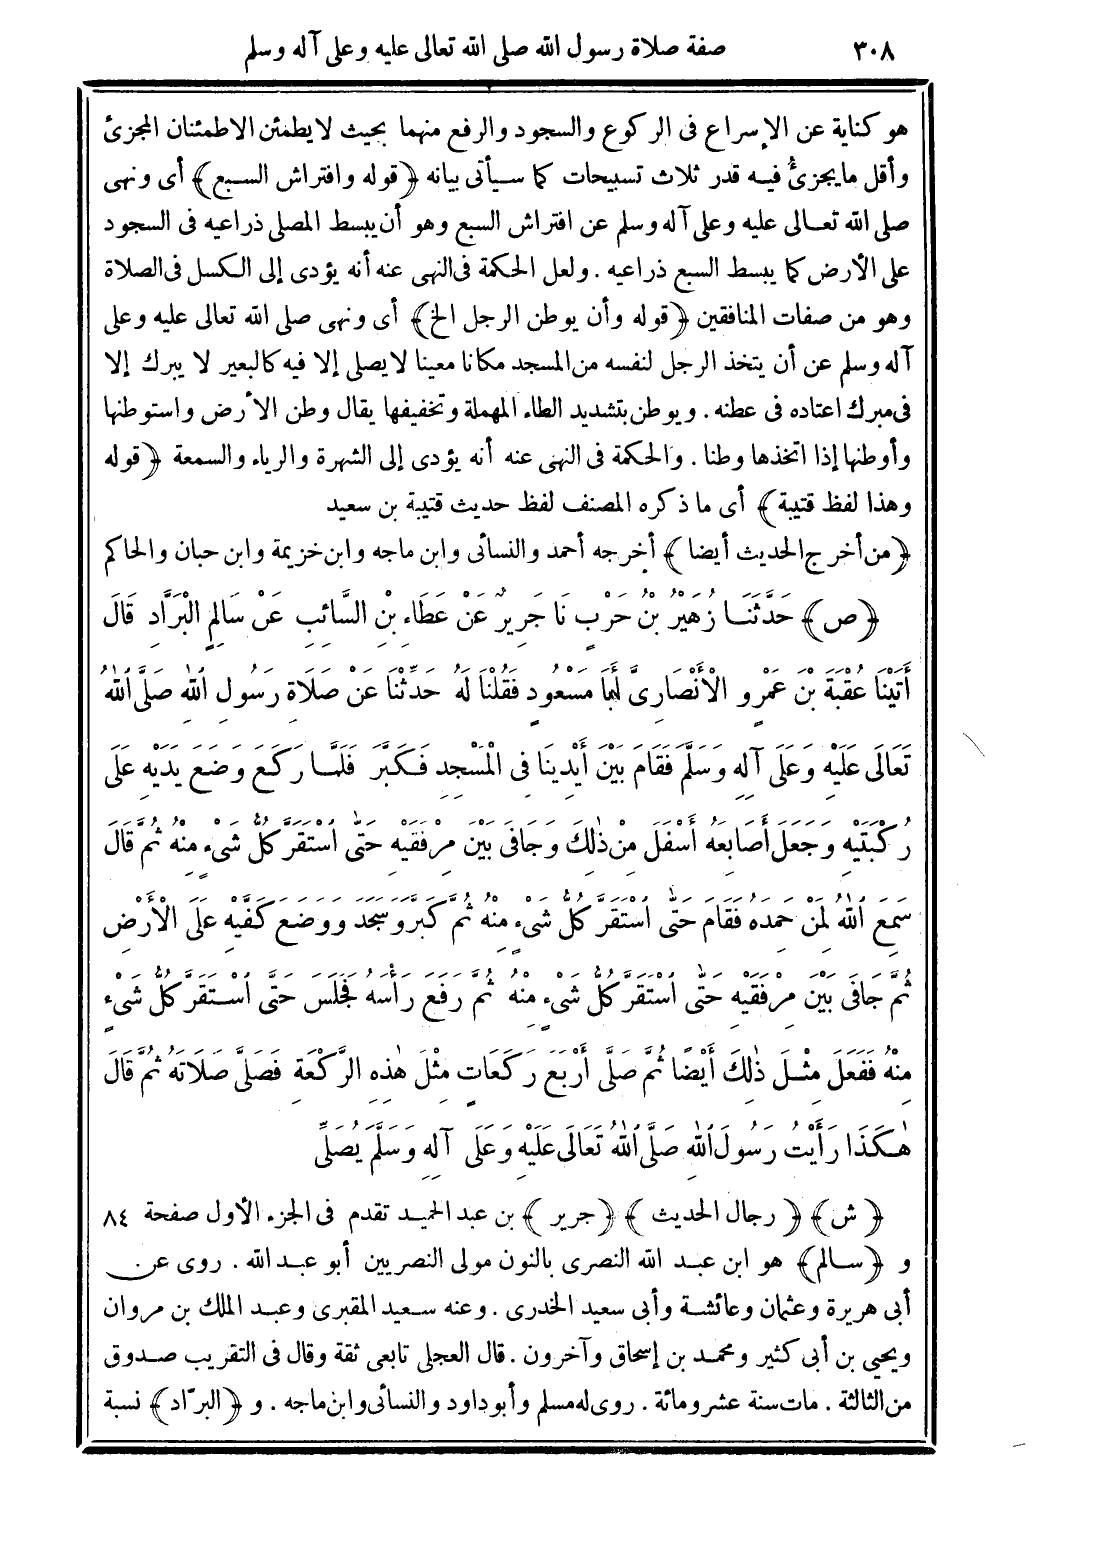 ٣٠٨ صفة صلاة رسول الله صلى الله تعالى عليه وعلى آله وسلم
هو كناية عن الإسراع فى الركوع والسجود والرفع منهما بحيث لا يطمئن الاطمئنان المجزئ
وأقل ما يجزئ فيه قدر ثلاث تسبيحات كما سيأتى بيانه ﴿قوله وافتراش السبع﴾ أى ونهى
صلى الله تعالى عليه وعلى آله وسلم عن افتراش السبع وهو أن يبسط المصلى ذراعيه فى السجود
على الأرض كما يبسط السبع ذراعيه . ولعل الحكمة فى النهى عنه أنه يؤدى إلى الكسل فى الصلاة
وهو من صفات المنافقين ﴿قوله وأن يوطن الرجل الخ﴾ أى ونهى صلى الله تعالى عليه وعلى
آله وسلم عن أن يتخذ الرجل لنفسه من المسجد مكانا معينا لا يصلى إلا فيه كالبعير لا يبرك إلا
فى مبرك اعتاده فى عطنه . ويوطن بتشديد الطاء المهملة وتخفيفها يقال وطن الأرض واستوطنها
وأوطنها إذا اتخذها وطنا . والحكمة فى النهى عنه أنه يؤدى إلى الشهرة والرياء والسمعة ﴿قوله
وهذا لفظ قتيبة﴾ أى ما ذكره المصنف لفظ حديث قتيبة بن سعيد
﴿من أخرج الحديث أيضا﴾ أخرجه أحمد والنسائى وابن ماجه وابن خزيمة وابن حبان والحاكم
﴿ص﴾ حَدَّثَنَا زُهَيْرُ بْنُ حَرْبٍ نَا جَرِيرٌ عَنْ عَطَاءِ بْنِ السَّائِبِ عَنْ سَالِمٍ الْبَرَّادِ قَالَ
أَتَيْنَا عُقْبَةَ بْنَ عَمْرٍو الْأَنْصَارِىَّ أَبَا مَسْعُودٍ فَقُلْنَا لَهُ حَدِّثْنَا عَنْ صَلَاةِ رَسُولِ اللهِ صَلَّى اللهُ
تَعَالَى عَلَيْهِ وَعَلَى آلِهِ وَسَلَّمَ فَقَامَ بَيْنَ أَيْدِينَا فِى الْمَسْجِدِ فَكَبَّرَ فَلَمَّا رَكَعَ وَضَعَ يَدَيْهِ عَلَى
رُكْبَتَيْهِ وَجَعَلَ أَصَابِعَهُ أَسْفَلَ مِنْ ذٰلِكَ وَجَافَى بَيْنَ مِرْفَقَيْهِ حَتَّى اسْتَقَرَّ كُلُّ شَىْءٍ مِنْهُ ثُمَّ قَالَ
سَمِعَ اللهُ لِمَنْ حَمِدَهُ فَقَامَ حَتَّى اسْتَقَرَّ كُلُّ شَىْءٍ مِنْهُ ثُمَّ كَبَّرَ وَسَجَدَ وَوَضَعَ كَفَّيْهِ عَلَى الْأَرْضِ
ثُمَّ جَافَى بَيْنَ مِرْفَقَيْهِ حَتَّى اسْتَقَرَّ كُلُّ شَىْءٍ مِنْهُ ثُمَّ رَفَعَ رَأْسَهُ فَجَلَسَ حَتَّى اسْتَقَرَّ كُلُّ شَىْءٍ
مِنْهُ فَفَعَلَ مِثْلَ ذٰلِكَ أَيْضًا ثُمَّ صَلَّى أَرْبَعَ رَكَعَاتٍ مِثْلَ هٰذِهِ الرَّكْعَةِ فَصَلَّى صَلَاتَهُ ثُمَّ قَالَ
هٰكَذَا رَأَيْتُ رَسُولَ اللهِ صَلَّى اللهُ تَعَالَى عَلَيْهِ وَعَلَى آلِهِ وَسَلَّمَ يُصَلِّى
﴿ش﴾ ﴿رجال الحديث﴾ ﴿جرير﴾ بن عبد الحميد تقدم فى الجزء الأول صفحة ٨٤
و ﴿سالم﴾ هو ابن عبد الله النصرى بالنون مولى النصريين أبو عبد الله . روى عن
أبى هريرة وعثمان وعائشة وأبى سعيد الخدرى . وعنه سعيد المقبرى وعبد الملك بن مروان
ويحيى بن أبى كثير ومحمد بن إسحاق وآخرون . قال العجلى تابعى ثقة وقال فى التقريب صدوق
من الثالثة . مات سنة عشر ومائة . روى له مسلم وأبو داود والنسائى وابن ماجه . و ﴿البرّاد﴾ نسبة